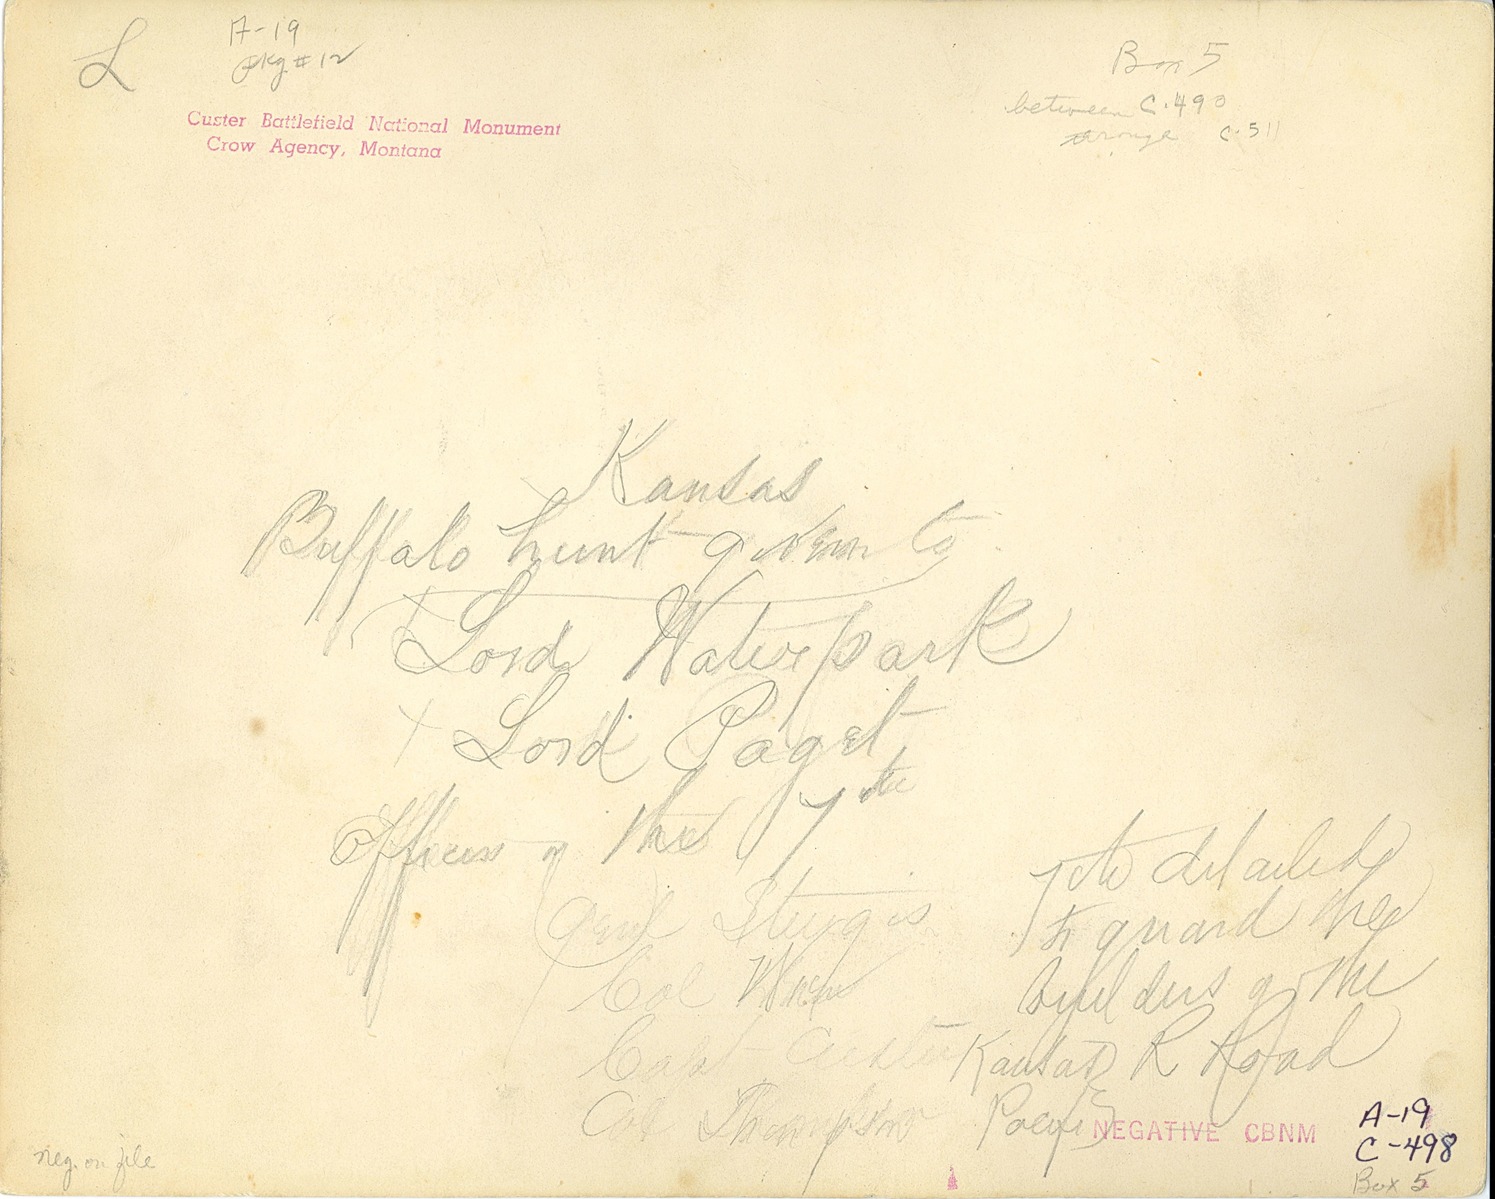 L
A-19
pkg # 12
Custer Battlefield National Monument
Crow Agency, Montana
Box 5
between C-490
C-511
Kansas
Buffalo hunt given to
Lord Waterpark
+ Lord Paget
officers of the 7th
Genl Sturgis
Col
Capt Custer
Col Thompson
7th detailed
to guard the
builders of the
Kansas R Road
Pacific
NEGATIVE CBNM
A-19
C-498
Box 5
neg. on file